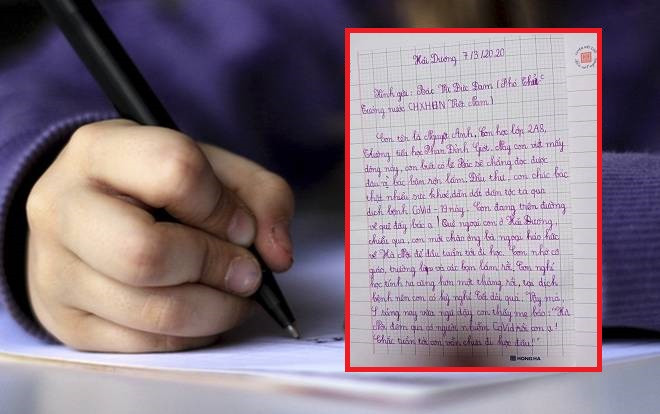 Hải Dương 7/3/2020
Kính gửi: Bác Vũ Đức Đam (Phó Thủ
Tướng nước CHXHCN Việt Nam)
Con tên là Nguyệt Anh, Con học lớp 2A8,
Trường tiểu học Phan Đình Giót. Nay con viết mấy
dòng này, con biết có lẽ Bác sẽ chẳng đọc được
đâu vì bác bận rộn lắm. Đầu thư, con chúc bác
thật nhiều sức khoẻ, dẫn dắt dân tộc ta qua
dịch bệnh Covid-19 này. Con đang trên đường
về quê đấy bác ạ! Quê ngoại con ở Hải Dương,
chiều qua, con mới chào ông bà ngoại háo hức
về Hà Nội để đầu tuần tới đi học. Con nhớ cô
giáo, trường lớp và các bạn lắm rồi, Con nghỉ
học tính ra cũng hơn một tháng rồi, tại dịch
bệnh nên con có kỳ nghỉ Tết dài quá. Thế mà,
sáng nay vừa ngủ dậy con thấy mẹ bảo: "Hà
Nội đêm qua có người nhiễm Covid rồi con ạ!
Chắc tuần tới con vẫn chưa đi học đâu!"
HONG HA